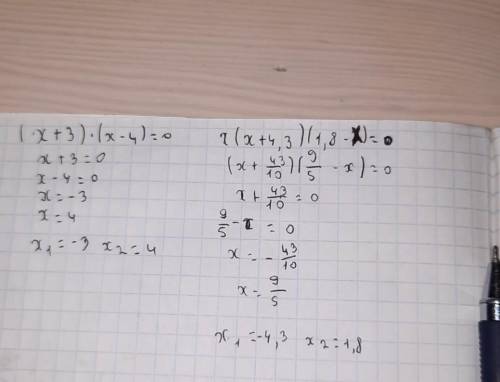 (x+3)·(x-4)=0
x+3=0
x-4=0
x=-3
x=4
x₁=-3 x₂=4
(x+4,3)(1,8-x)=0
(x+43/10)(9/5-x)=0
x+43/10=0
9/5-x=0
x=-43/10
x=9/5
x₁=-4,3 x₂=1,8